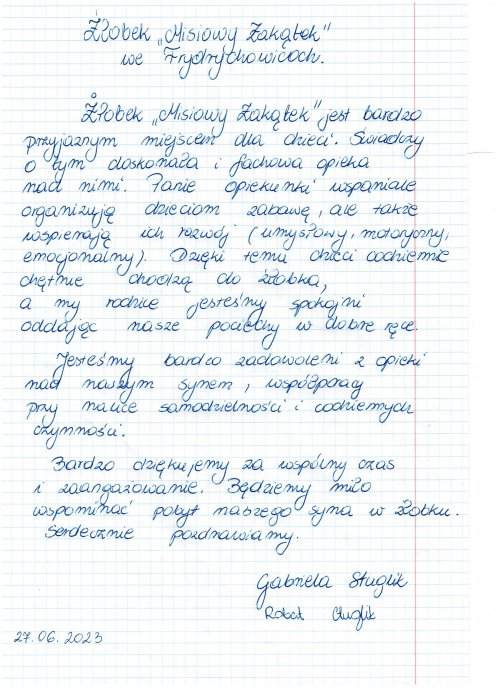 Żłobek „Misiowy Zakątek"
we Frydrychowicach.
Żłobek „Misiowy Zakątek" jest bardzo
przyjaznym miejscem dla dzieci. Świadczy
o tym doskonała i fachowa opieka
nad nimi. Panie opiekunki wspaniale
organizują dzieciom zabawę, ale także
wspierają ich rozwój (umysłowy, motoryczny,
emocjonalny). Dzięki temu dzieci codziennie
chętnie chodzą do żłobka,
a my rodzice jesteśmy spokojni
oddając nasze pociechy w dobre ręce.
Jesteśmy bardzo zadowoleni z opieki
nad naszym synem, współpracy
przy nauce samodzielności i codziennych
czynności.
Bardzo dziękujemy za wspólny czas
i zaangażowanie. Będziemy miło
wspominać pobyt naszego syna w żłobku.
Serdecznie pozdrawiamy.
Gabriela Stuglik
Robert Stuglik
27.06.2023